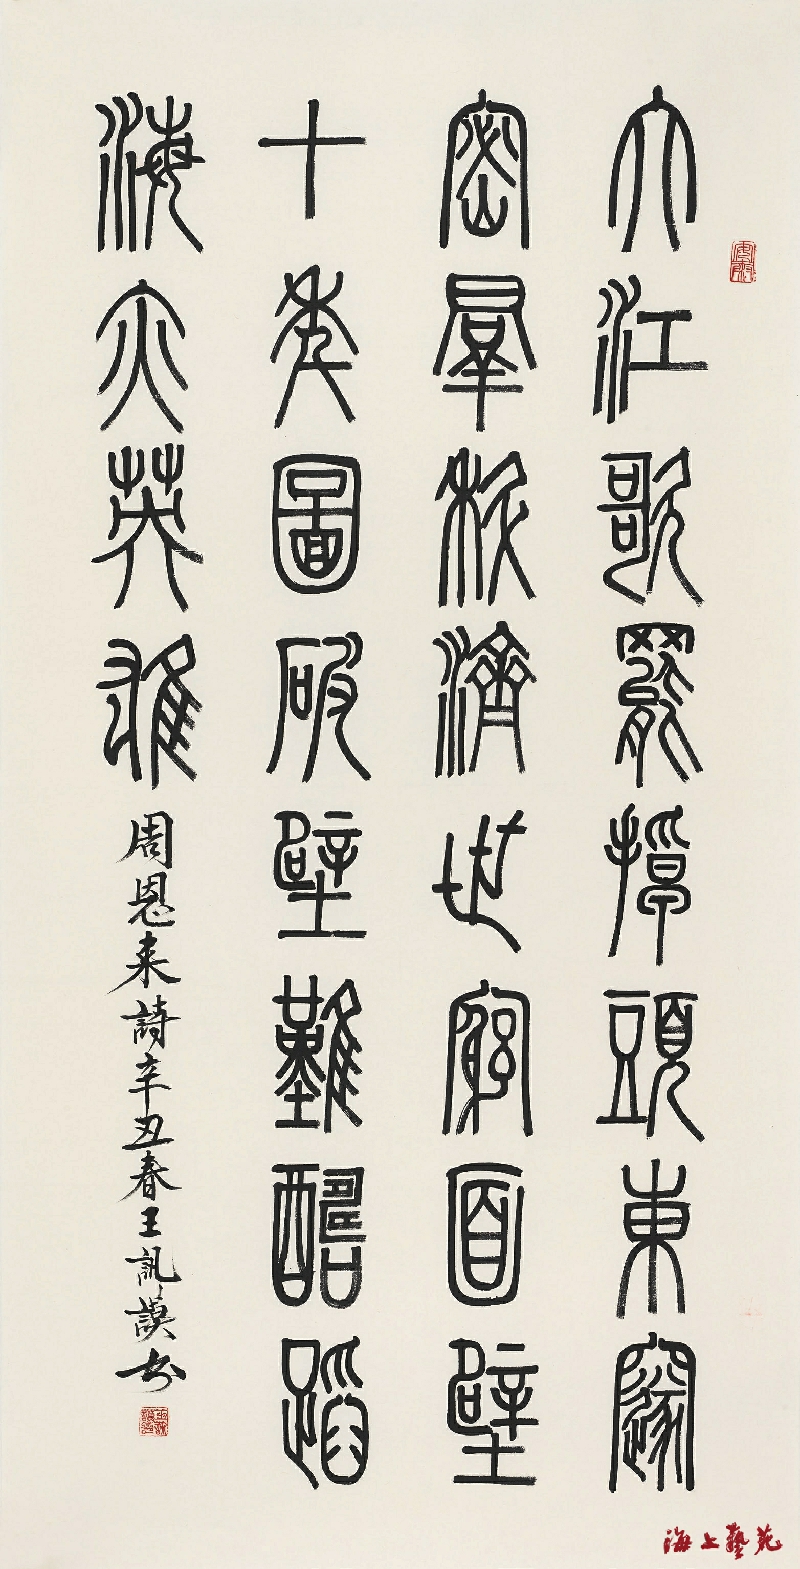 大江歌罷掉頭東邃
密羣科濟世窮面壁
十年圖破壁難醻蹈
海亦英雄
周恩来詩辛丑春王訊謨书
海上藝苑